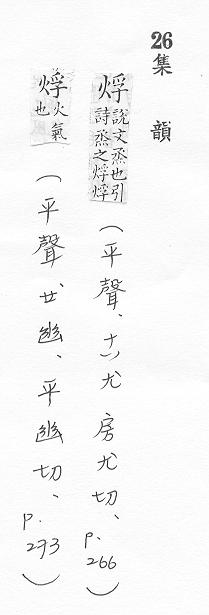 26集韻
烰說文烝也引詩烝之烰烰（平聲、十八尤房尤切、p.266）
烰火氣也（平聲、廿幽、平幽切、p.293）